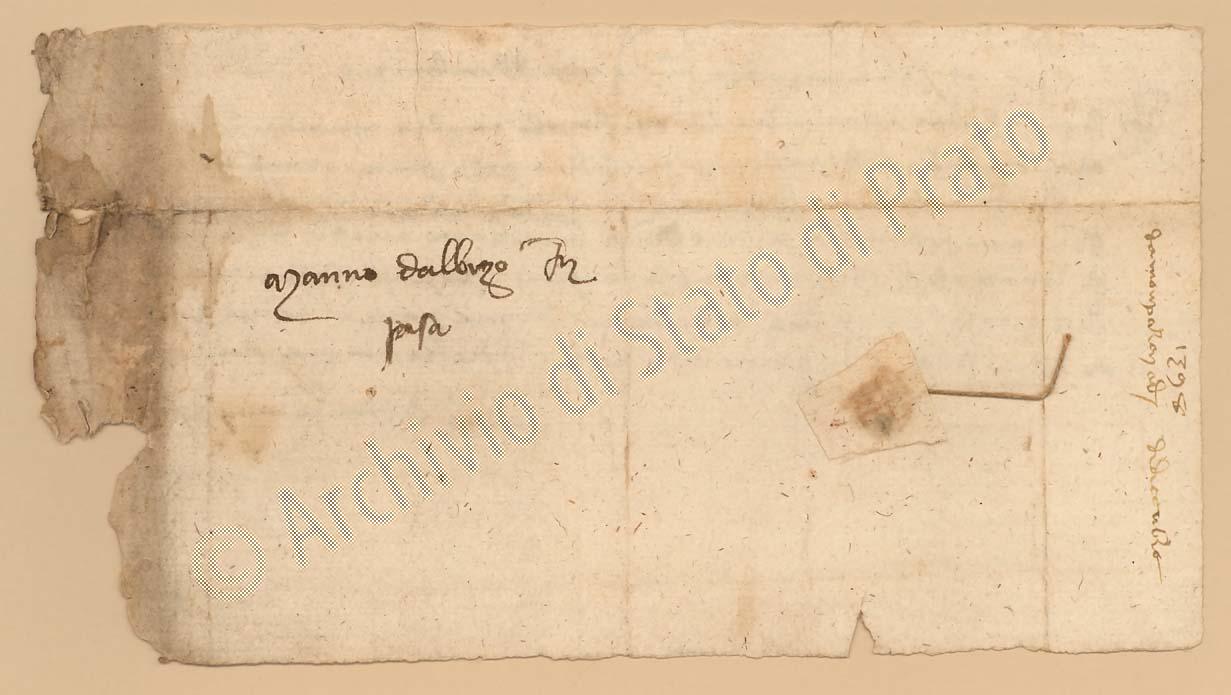 Manno dalbizo Jn
pisa
1398
dicembre
© Archivio di Stato di Prato